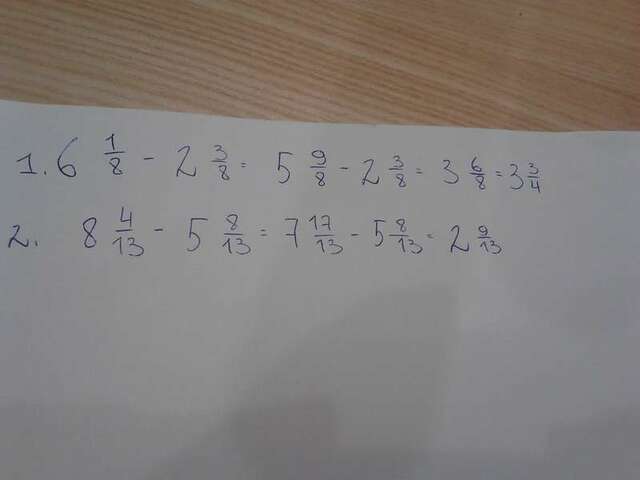 1. 6 1/8 - 2 3/8 = 5 9/8 - 2 3/8 = 3 6/8 = 3 3/4
2. 8 4/13 - 5 8/13 = 7 17/13 - 5 8/13 = 2 9/13